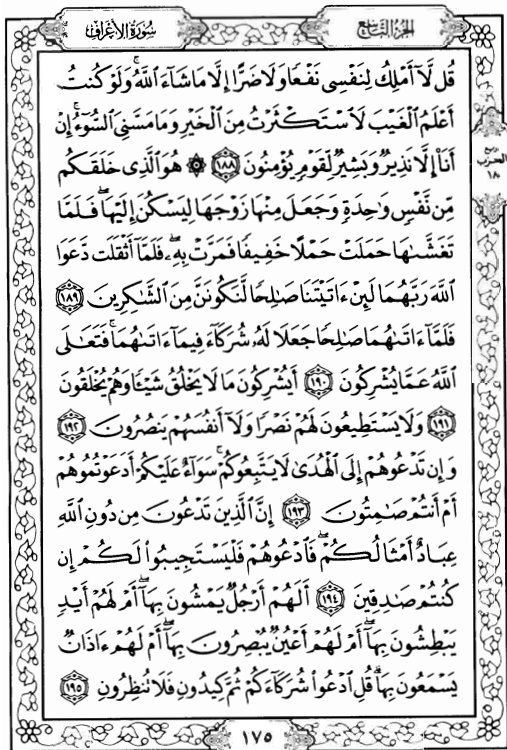 سُورَةُ الأَعْرَافِ
الجُزْءُ التَّاسِعُ
قُل لَّآ أَمْلِكُ لِنَفْسِى نَفْعًا وَلَا ضَرًّا إِلَّا مَا شَآءَ ٱللَّهُ ۚ وَلَوْ كُنتُ
أَعْلَمُ ٱلْغَيْبَ لَٱسْتَكْثَرْتُ مِنَ ٱلْخَيْرِ وَمَا مَسَّنِىَ ٱلسُّوٓءُ ۚ إِنْ
أَنَا۠ إِلَّا نَذِيرٌ وَبَشِيرٌ لِّقَوْمٍ يُؤْمِنُونَ ١٨٨ ۞ هُوَ ٱلَّذِى خَلَقَكُم
مِّن نَّفْسٍ وَٰحِدَةٍ وَجَعَلَ مِنْهَا زَوْجَهَا لِيَسْكُنَ إِلَيْهَا ۖ فَلَمَّا
تَغَشَّىٰهَا حَمَلَتْ حَمْلًا خَفِيفًا فَمَرَّتْ بِهِۦ ۖ فَلَمَّآ أَثْقَلَت دَّعَوَا
ٱللَّهَ رَبَّهُمَا لَئِنْ ءَاتَيْتَنَا صَٰلِحًا لَّنَكُونَنَّ مِنَ ٱلشَّٰكِرِينَ ١٨٩
فَلَمَّآ ءَاتَىٰهُمَا صَٰلِحًا جَعَلَا لَهُۥ شُرَكَآءَ فِيمَآ ءَاتَىٰهُمَا ۚ فَتَعَٰلَى
ٱللَّهُ عَمَّا يُشْرِكُونَ ١٩٠ أَيُشْرِكُونَ مَا لَا يَخْلُقُ شَيْـًٔا وَهُمْ يُخْلَقُونَ
١٩١ وَلَا يَسْتَطِيعُونَ لَهُمْ نَصْرًا وَلَآ أَنفُسَهُمْ يَنصُرُونَ ١٩٢
وَإِن تَدْعُوهُمْ إِلَى ٱلْهُدَىٰ لَا يَتَّبِعُوكُمْ ۚ سَوَآءٌ عَلَيْكُمْ أَدَعَوْتُمُوهُمْ
أَمْ أَنتُمْ صَٰمِتُونَ ١٩٣ إِنَّ ٱلَّذِينَ تَدْعُونَ مِن دُونِ ٱللَّهِ
عِبَادٌ أَمْثَالُكُمْ ۖ فَٱدْعُوهُمْ فَلْيَسْتَجِيبُوا۟ لَكُمْ إِن
كُنتُمْ صَٰدِقِينَ ١٩٤ أَلَهُمْ أَرْجُلٌ يَمْشُونَ بِهَآ ۖ أَمْ لَهُمْ أَيْدٍ
يَبْطِشُونَ بِهَآ ۖ أَمْ لَهُمْ أَعْيُنٌ يُبْصِرُونَ بِهَآ ۖ أَمْ لَهُمْ ءَاذَانٌ
يَسْمَعُونَ بِهَا ۗ قُلِ ٱدْعُوا۟ شُرَكَآءَكُمْ ثُمَّ كِيدُونِ فَلَا تُنظِرُونِ ١٩٥
ربع
الحزب
١٨
١٧٥